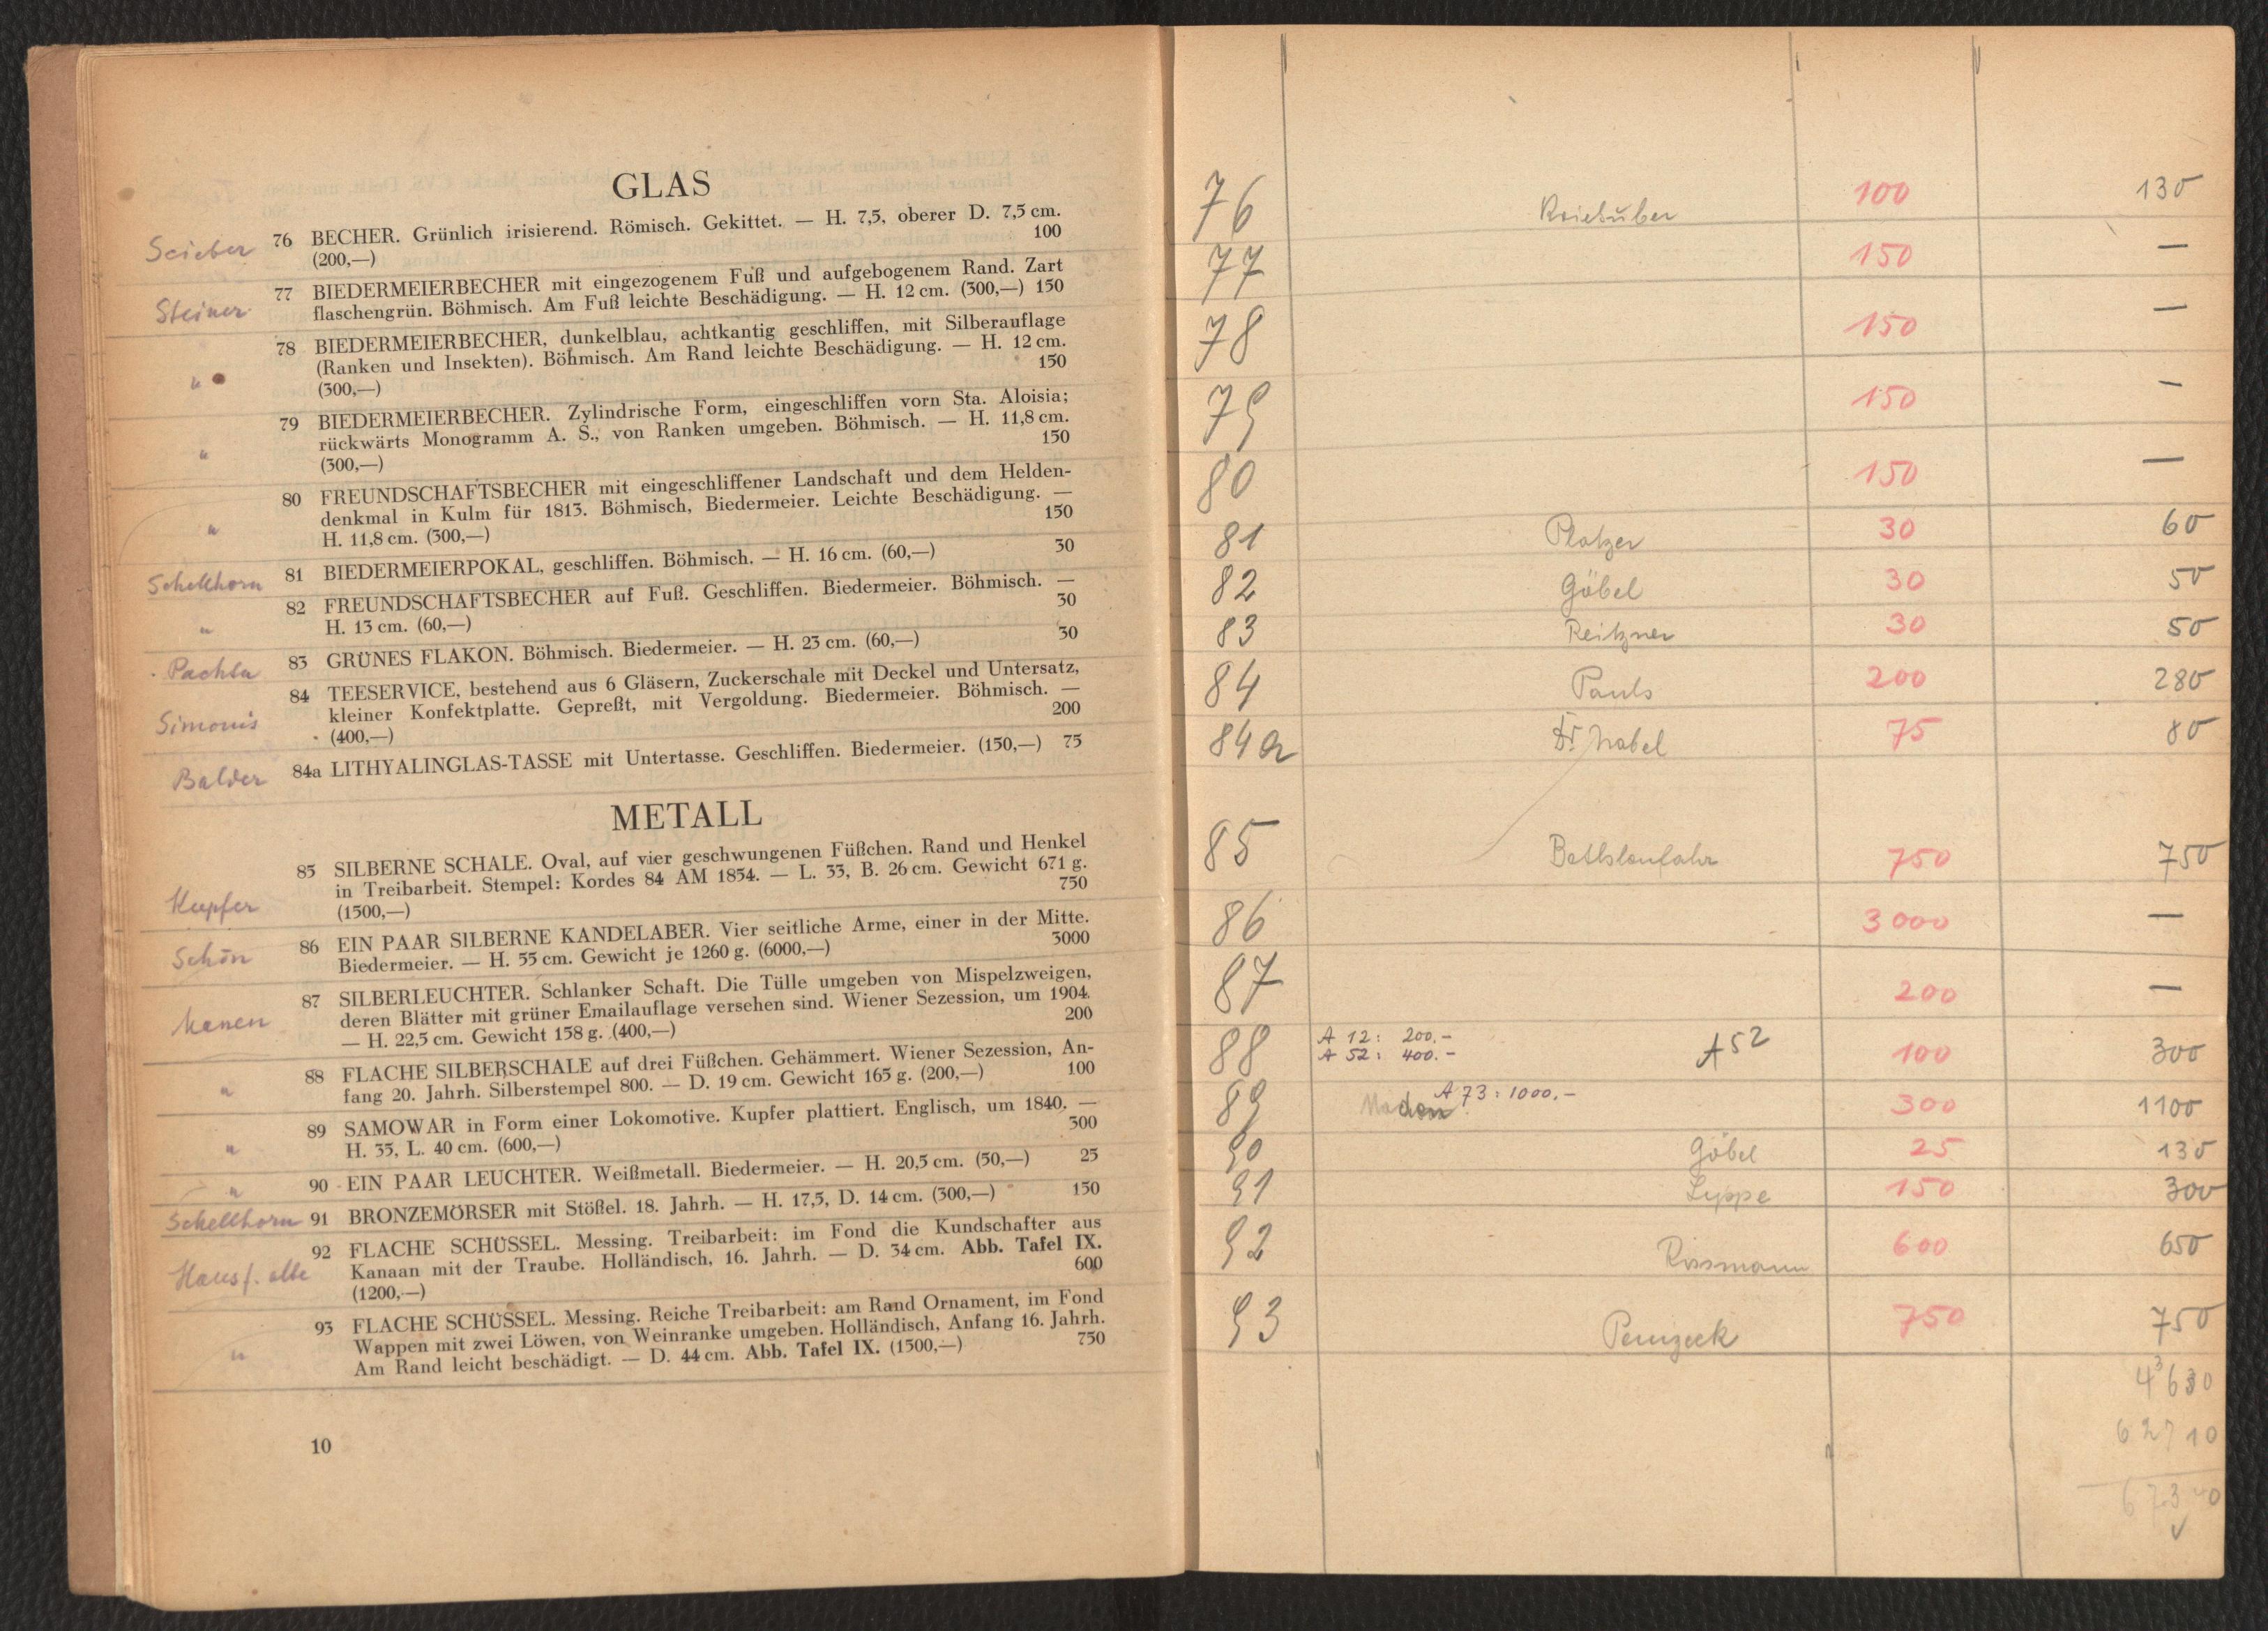 GLAS
Scieber
76 BECHER. Grünlich irisierend. Römisch. Gekittet. — H. 7,5, oberer D. 7,5 cm.
(200,—) 100
Steiner
77 BIEDERMEIERBECHER mit eingezogenem Fuß und aufgebogenem Rand. Zart
flaschengrün. Böhmisch. Am Fuß leichte Beschädigung. — H. 12 cm. (300,—) 150
"
78 BIEDERMEIERBECHER, dunkelblau, achtkantig geschliffen, mit Silberauflage
(Ranken und Insekten). Böhmisch. Am Rand leichte Beschädigung. — H. 12 cm.
(300,—) 150
"
79 BIEDERMEIERBECHER. Zylindrische Form, eingeschliffen vorn Sta. Aloisia;
rückwärts Monogramm A. S., von Ranken umgeben. Böhmisch. — H. 11,8 cm.
(300,—) 150
"
80 FREUNDSCHAFTSBECHER mit eingeschliffener Landschaft und dem Helden-
denkmal in Kulm für 1813. Böhmisch, Biedermeier. Leichte Beschädigung. —
H. 11,8 cm. (300,—) 150
Schellhorn
81 BIEDERMEIERPOKAL, geschliffen. Böhmisch. — H. 16 cm. (60,—) 30
"
82 FREUNDSCHAFTSBECHER auf Fuß. Geschliffen. Biedermeier. Böhmisch. —
H. 13 cm. (60,—) 30
Pachta
83 GRÜNES FLAKON. Böhmisch. Biedermeier. — H. 23 cm. (60,—) 30
Simonis
84 TEESERVICE, bestehend aus 6 Gläsern, Zuckerschale mit Deckel und Untersatz,
kleiner Konfektplatte. Gepreßt, mit Vergoldung. Biedermeier. Böhmisch. —
(400,—) 200
Balder
84a LITHYALINGLAS-TASSE mit Untertasse. Geschliffen. Biedermeier. (150,—) 75
METALL
Kupfer
85 SILBERNE SCHALE. Oval, auf vier geschwungenen Füßchen. Rand und Henkel
in Treibarbeit. Stempel: Kordes 84 AM 1854. — L. 33, B. 26 cm. Gewicht 671 g.
(1500,—) 750
Schön
86 EIN PAAR SILBERNE KANDELABER. Vier seitliche Arme, einer in der Mitte.
Biedermeier. — H. 55 cm. Gewicht je 1260 g. (6000,—) 3000
87 SILBERLEUCHTER. Schlanker Schaft. Die Tülle umgeben von Mispelzweigen,
deren Blätter mit grüner Emailauflage versehen sind. Wiener Sezession, um 1904.
— H. 22,5 cm. Gewicht 158 g. (400,—) 200
"
88 FLACHE SILBERSCHALE auf drei Füßchen. Gehämmert. Wiener Sezession, An-
fang 20. Jahrh. Silberstempel 800. — D. 19 cm. Gewicht 165 g. (200,—) 100
"
89 SAMOWAR in Form einer Lokomotive. Kupfer plattiert. Englisch, um 1840. —
H. 33, L. 40 cm. (600,—) 300
"
90 EIN PAAR LEUCHTER. Weißmetall. Biedermeier. — H. 20,5 cm. (50,—) 25
Schellhorn
91 BRONZEMÖRSER mit Stößel. 18. Jahrh. — H. 17,5, D. 14 cm. (300,—) 150
92 FLACHE SCHÜSSEL. Messing. Treibarbeit: im Fond die Kundschafter aus
Kanaan mit der Traube. Holländisch, 16. Jahrh. — D. 34 cm. Abb. Tafel IX.
(1200,—) 600
"
93 FLACHE SCHÜSSEL. Messing. Reiche Treibarbeit: am Rand Ornament, im Fond
Wappen mit zwei Löwen, von Weinranke umgeben. Holländisch, Anfang 16. Jahrh.
Am Rand leicht beschädigt. — D. 44 cm. Abb. Tafel IX. (1500,—) 750
10
76 100 130
77 150 —
78 150 —
79 150 —
80 150 —
81 Platzer 30 60
82 Göbel 30 50
83 Reitzner 30 50
84 Pauls 200 280
84a 75 80
85 750 750
86 3000 —
87 200 —
88 A 12: 200.- A52 100 300
A 52: 400.-
89 A 73: 1000.- 300 1100
90 Göbel 25 130
91 Lippe 150 300
92 Rossmann 600 650
93 750 750